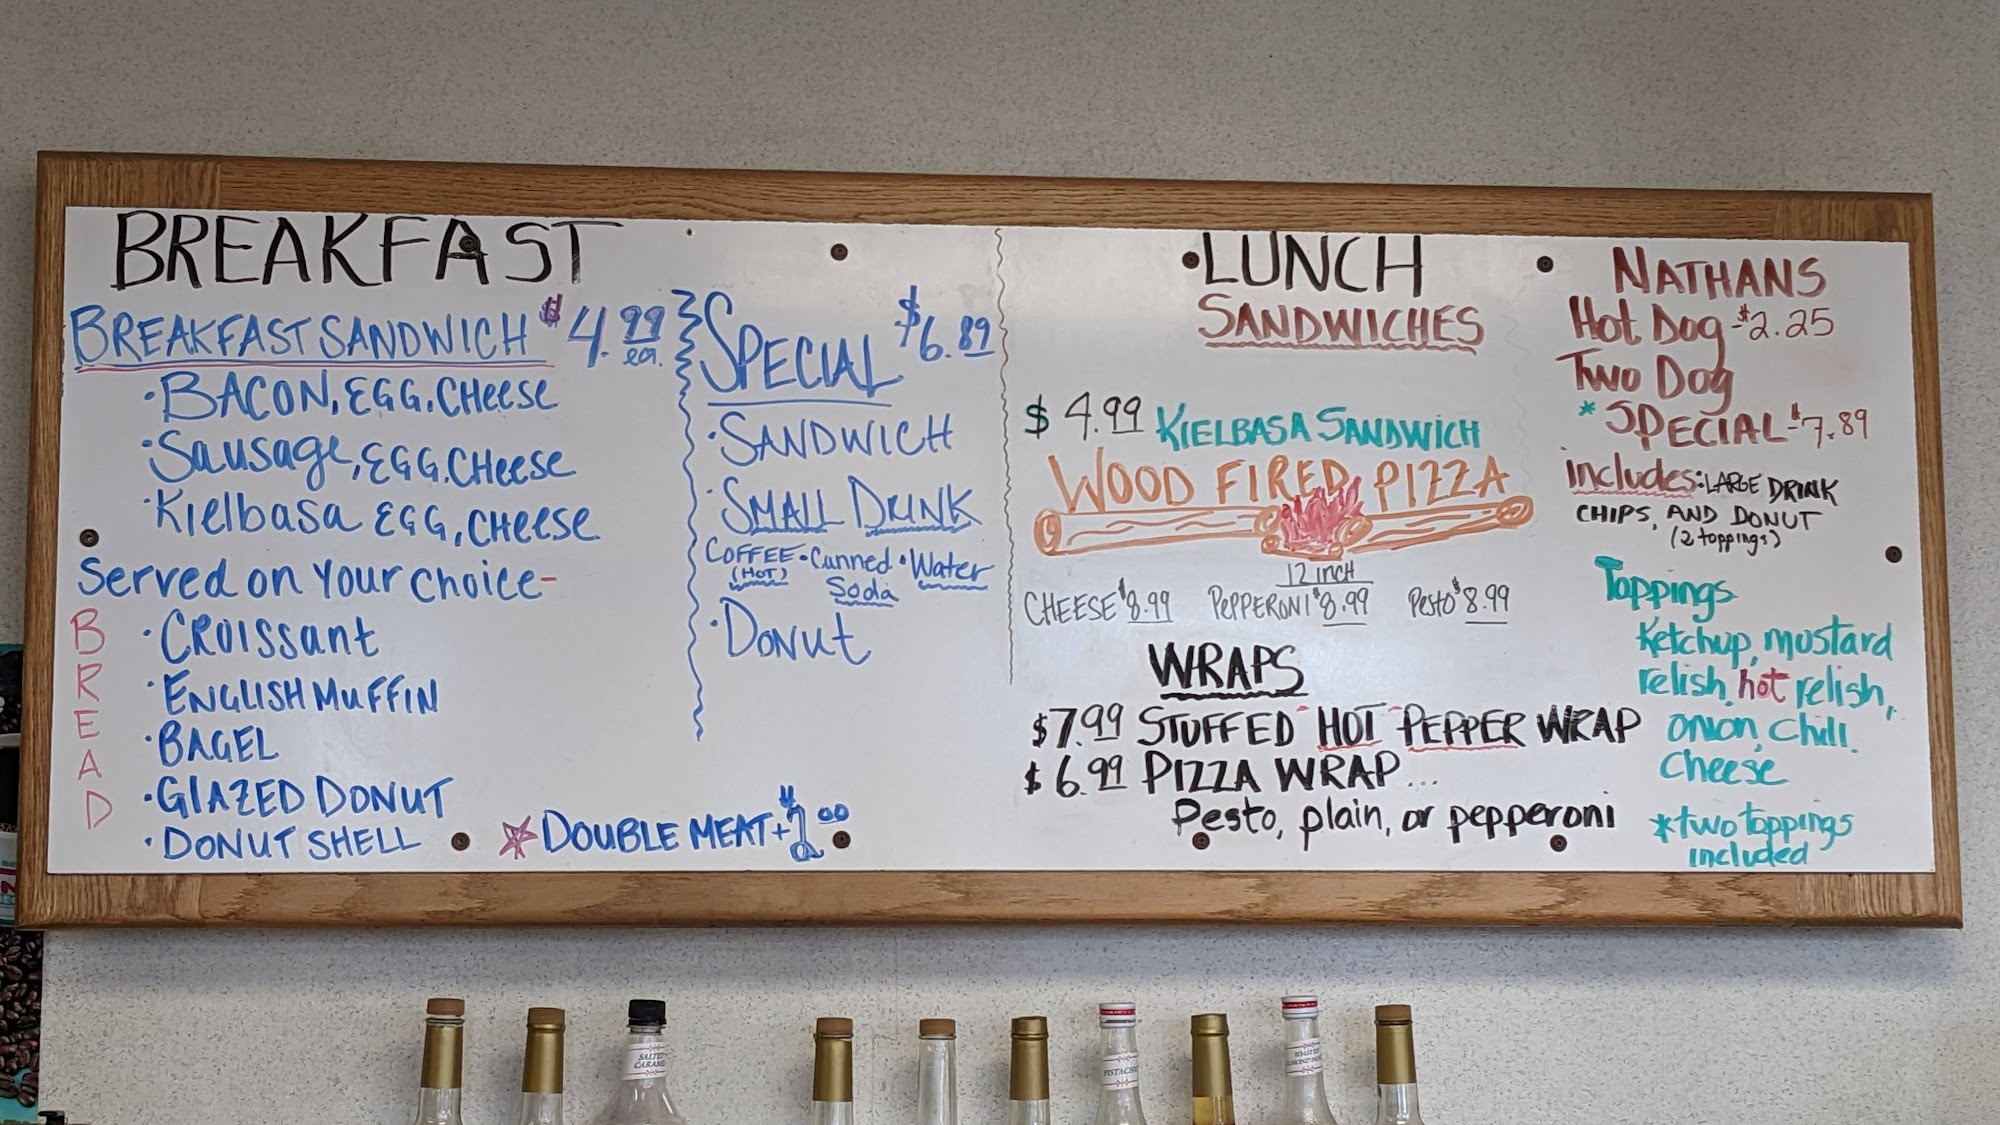 BREAKFAST
BREAKFAST SANDWICH $4.99 ea.
·BACON, EGG, CHeese
·Sausage, EGG, CHeese
·Kielbasa EGG, CHeese
Served on Your Choice-
BREAD
·CROISSant
·ENGLISH MUFFIN
·BAGEL
·GLAZED DONUT
·DONUT SHELL
*DOUBLE MEAT + $1.00
SPECIAL $6.89
·SANDWICH
·SMALL DRINK
COFFEE · Canned · Water
(HOT) Soda
·DONut
LUNCH
SANDWICHES
$4.99 KIELBASA SANDWICH
WOOD FIRED PIZZA
12 inch
CHEESE $8.99 PEPPERONI $8.99 PESTO $8.99
WRAPS
$7.99 STUFFED HOT PEPPER WRAP
$6.99 PIZZA WRAP...
Pesto, plain, or pepperoni
NATHANS
Hot Dog - $2.25
Two Dog
*SPECIAL - $7.89
includes: LARGE DRINK
CHIPS, AND DONUT
(2 toppings)
Toppings
Ketchup, mustard
relish, hot relish,
onion, chili,
cheese
*two toppings
included
SALTED
CARAMEL
PISTACHIO